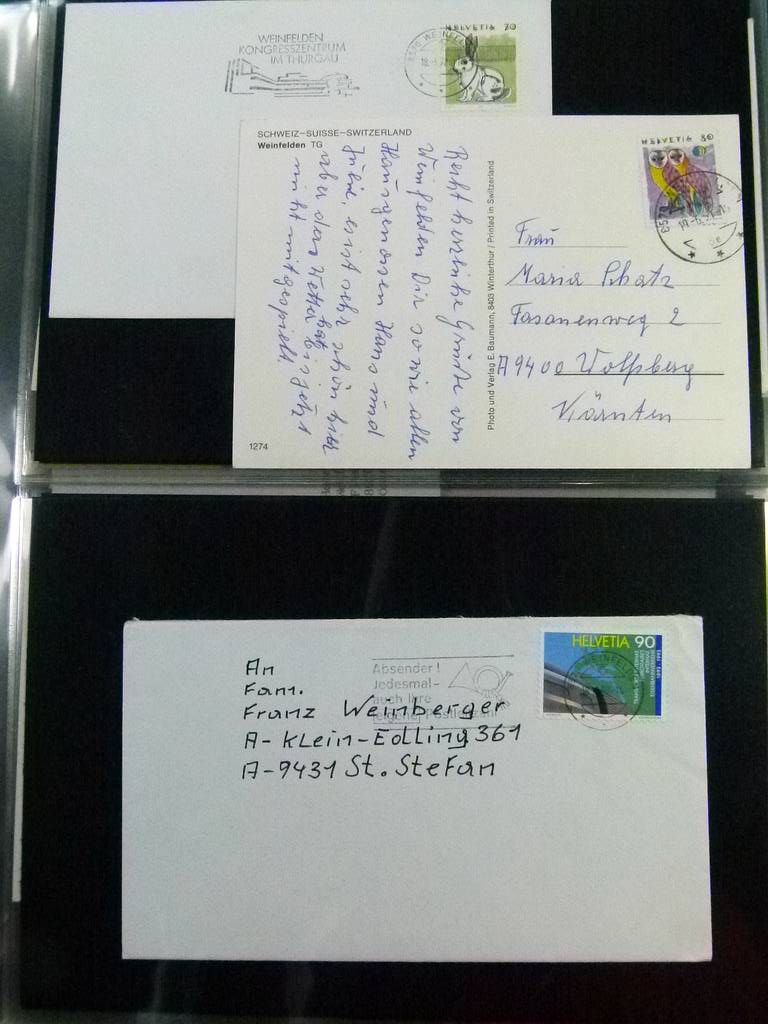 WEINFELDEN
KONGRESSZENTRUM
IM THURGAU
HELVETIA 70
8570 WEINFELDEN
SCHWEIZ-SUISSE-SWITZERLAND
Weinfelden TG
Recht herzliche Grüße von
Weinfelden Dir sowie allen
Hausgenossen Hans und
ist sehr schön hier
aber das Wetter hat bis jetzt
nicht mitgespielt.
1274
Photo und Verlag E. Baumann, 8403 Winterthur / Printed in Switzerland
HELVETIA 80
8570
Frau
Maria Schatz
Fasanenweg 2
A 9400 Wolfsberg
Kärnten
HELVETIA 90
WEINFELDEN
Absender!
Jedesmal-
auch Ihre
eigene Postleitzahl
An
Fam.
Franz Weinberger
A-Klein-Edling 361
A-9431 St. Stefan